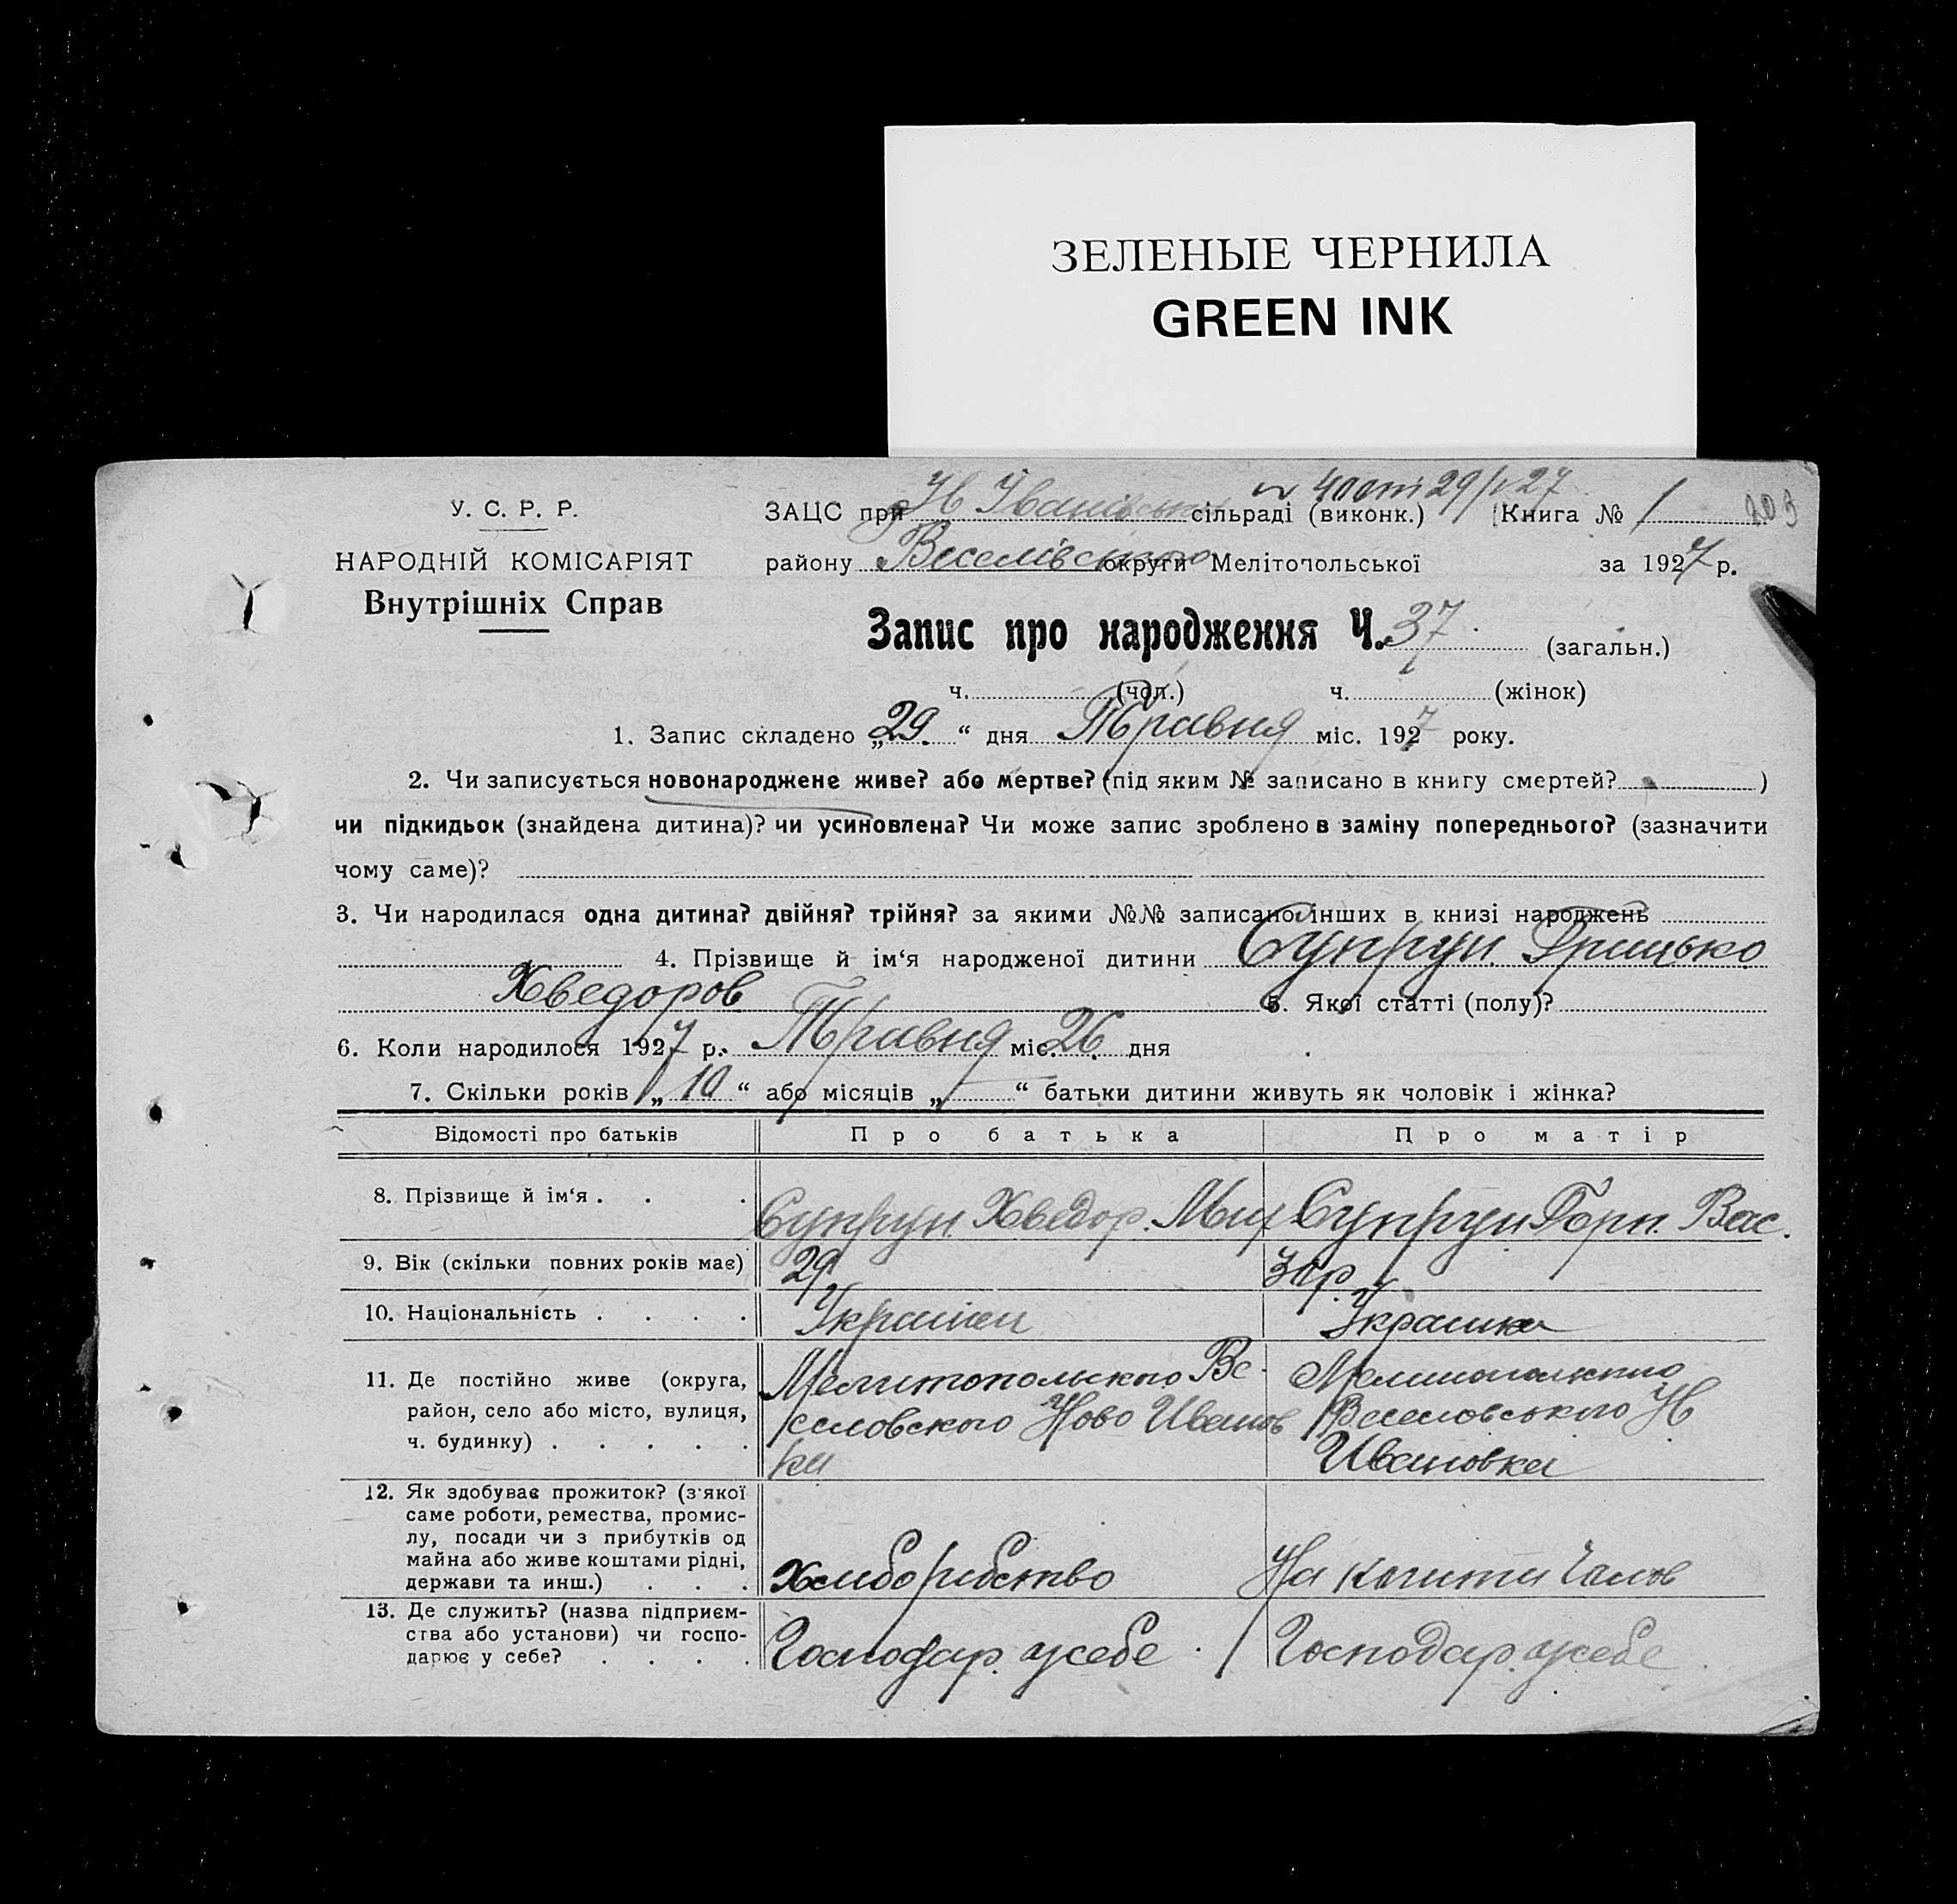 ЗЕЛЕНЫЕ ЧЕРНИЛА
GREEN INK
У. С. Р. Р.
НАРОДНІЙ КОМІСАРІЯТ
Внутрішніх Справ
ЗАЦС при Н Іванівськ сільраді (виконк.) Книга № 1
району Веселівського округи Мелітопольської за 1927 р.
Запис про народження Ч. 37 (загальн.)
ч. (чол.) ч. (жінок)
1. Запис складено „29“ дня Травня міс. 1927 року.
2. Чи записується новонароджене живе? або мертве? (під яким № записано в книгу смертей? )
чи підкидьок (знайдена дитина)? чи усиновлена? Чи може запис зроблено в заміну попереднього? (зазначити
чому саме)?
3. Чи народилася одна дитина? двійня? трійня? за якими №№ записано інших в книзі народжень
4. Прізвище й ім‘я народженої дитини Супрун Грицько
Хведоров 5. Якої статті (полу)?
6. Коли народилося 1927 р. Травня міс. 26 дня
7. Скільки років „10“ або місяців „ “ батьки дитини живуть як чоловік і жінка?
Відомості про батьків Про батька Про матір
8. Прізвище й ім‘я . . . Супрун Хведор. Мих Супрун Горп. Вас.
9. Вік (скільки повних років має) 29
10. Національність . . . . Українец Украинка
11. Де постійно живе (округа,
район, село або місто, вулиця,
ч. будинку) . . . . .
Мелитопольского Ве
селовского Ново Иванов
ки
Мелитопольского
Веселовського Н
Ивановка
12. Як здобуває прожиток? (з якої
саме роботи, ремества, промис-
лу, посади чи з прибутків од
майна або живе коштами рідні,
держави та инш.) . . .
Хлиборибство На кошти
13. Де служить? (назва підприєм-
ства або установи) чи госпо-
дарює у себе? . . . .
Господар. усебе Господар. усебе